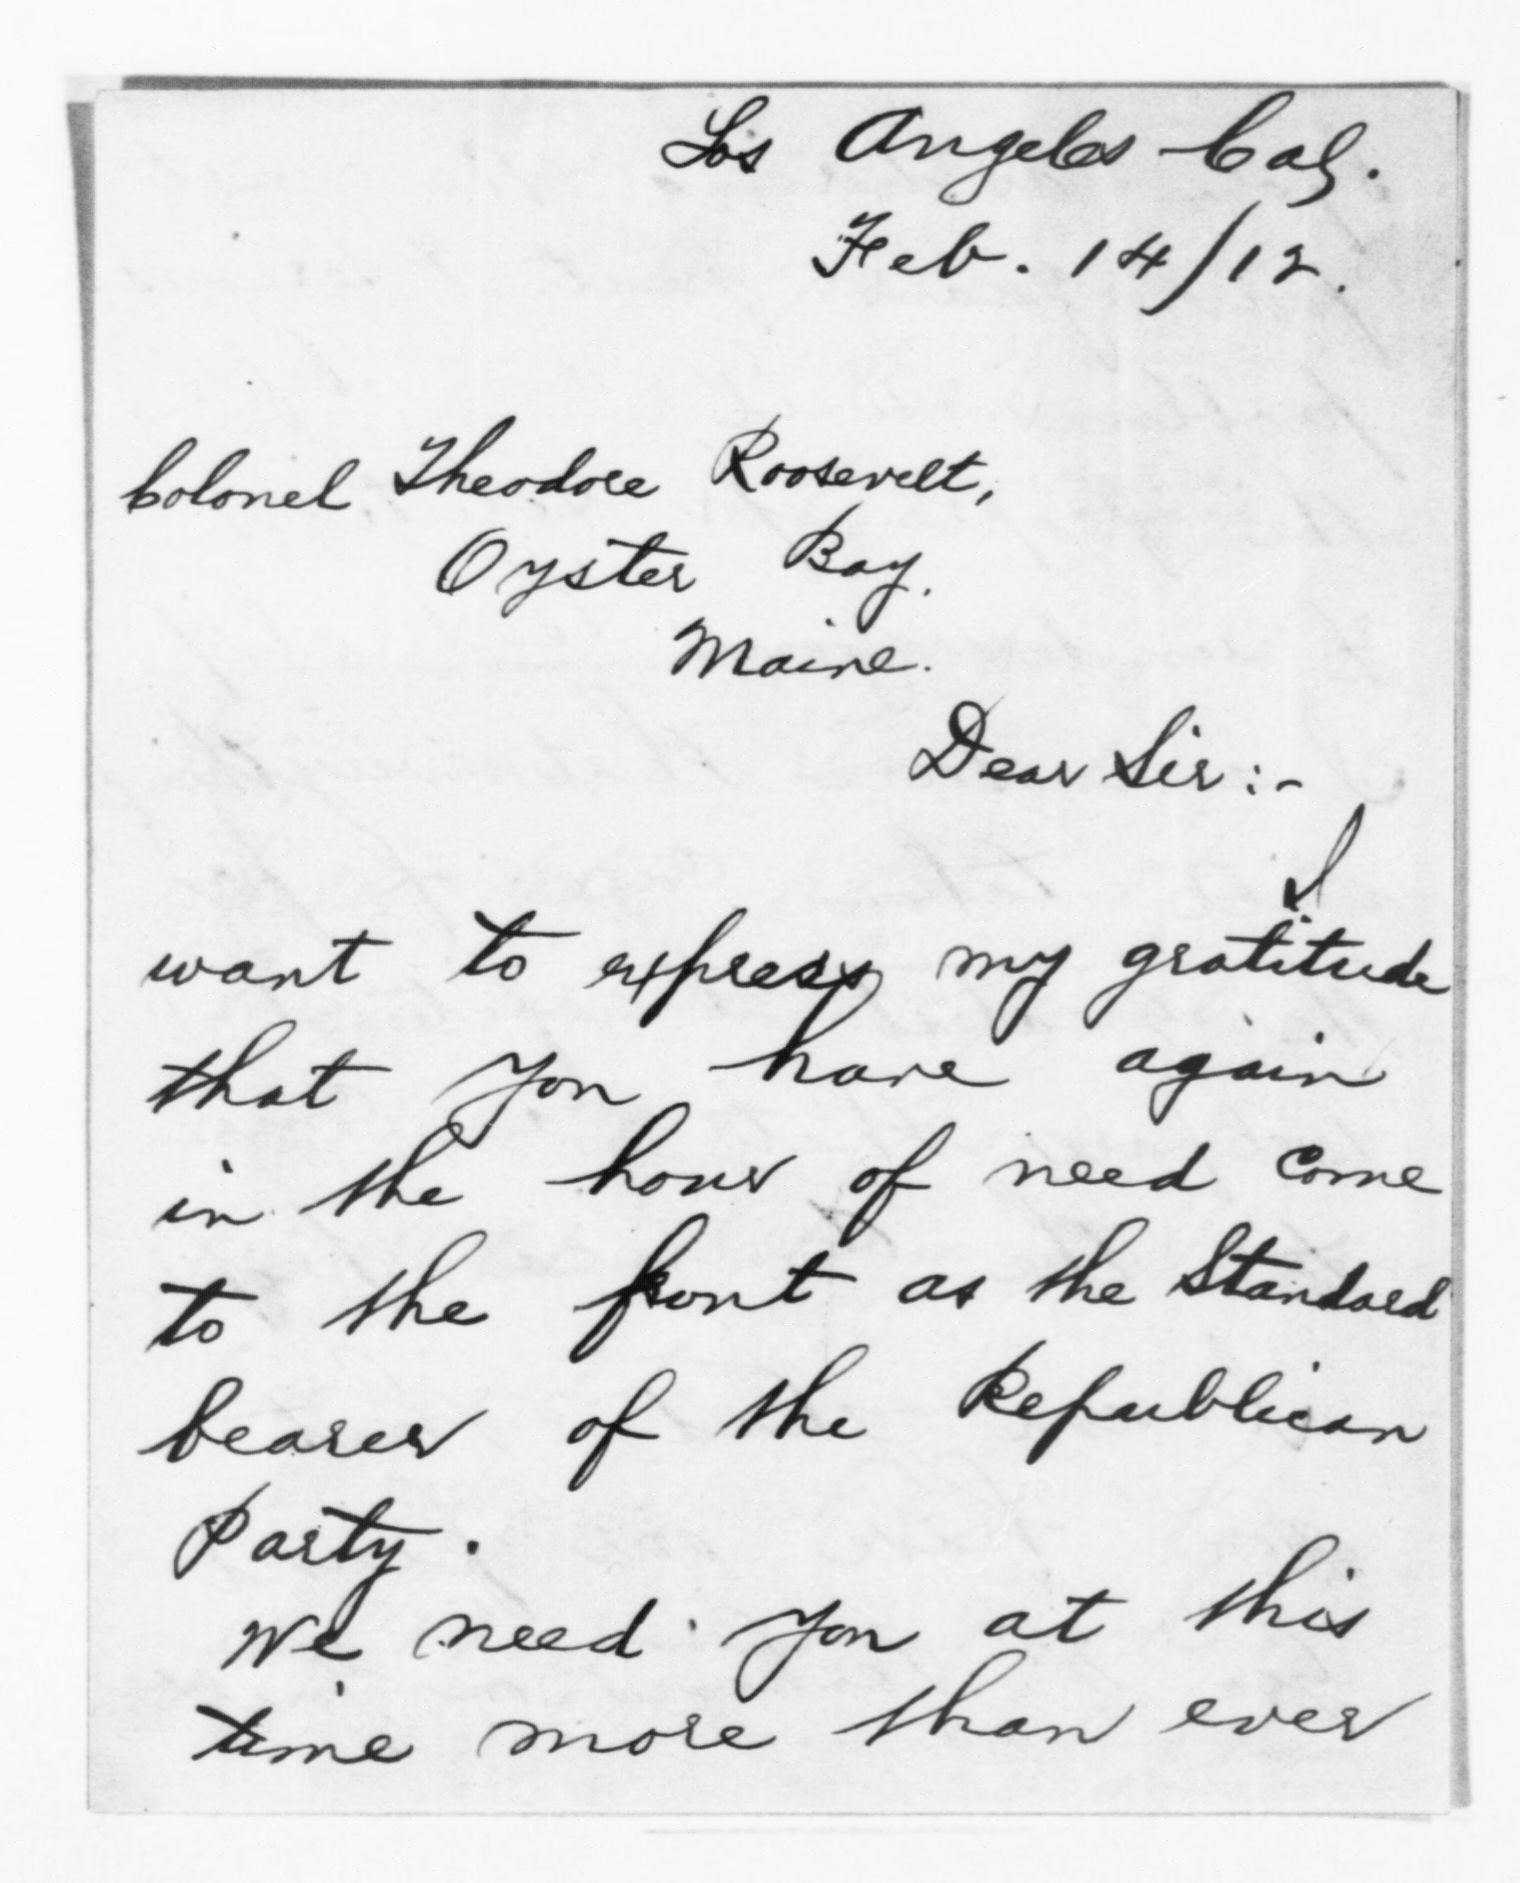 Los Angeles Cal.
Feb. 14/12.
Colonel Theodore Roosevelt,
Oyster Bay.
Maine.
Dear Sir:-
I
want to express my gratitude
that you have again
in the hour of need come
to the front as the Standard
bearer of the Republican
Party.
We need you at this
time more than ever